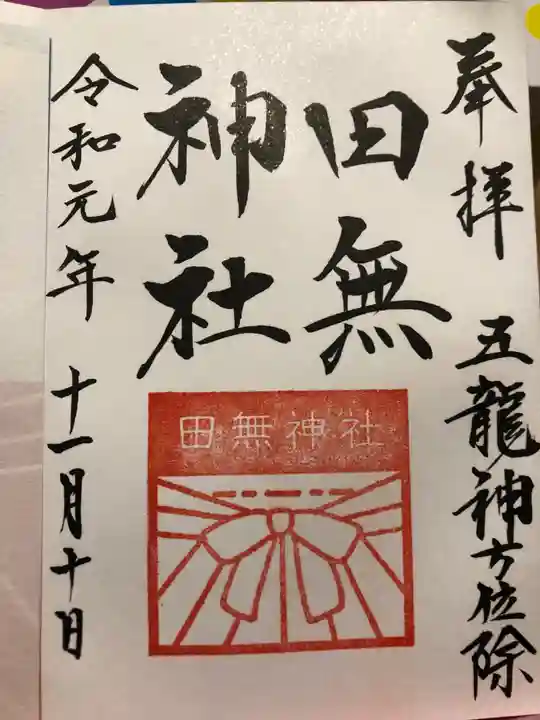 奉拝 五龍神方位除
田無
神社
田無神社
令和元年 十一月十日